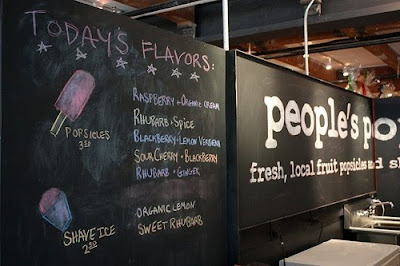 TODAY'S FLAVORS:
RASPBERRY + ORGANIC CREAM
RHUBARB + SPICE
BLACKBERRY + LEMON VERBENA
SOUR CHERRY + BLACKBERRY
RHUBARB + GINGER
POPSICLES
ORGANIC LEMON
SWEET RHUBARB
SHAVE ICE
people's po
fresh, local fruit popsicles and sh